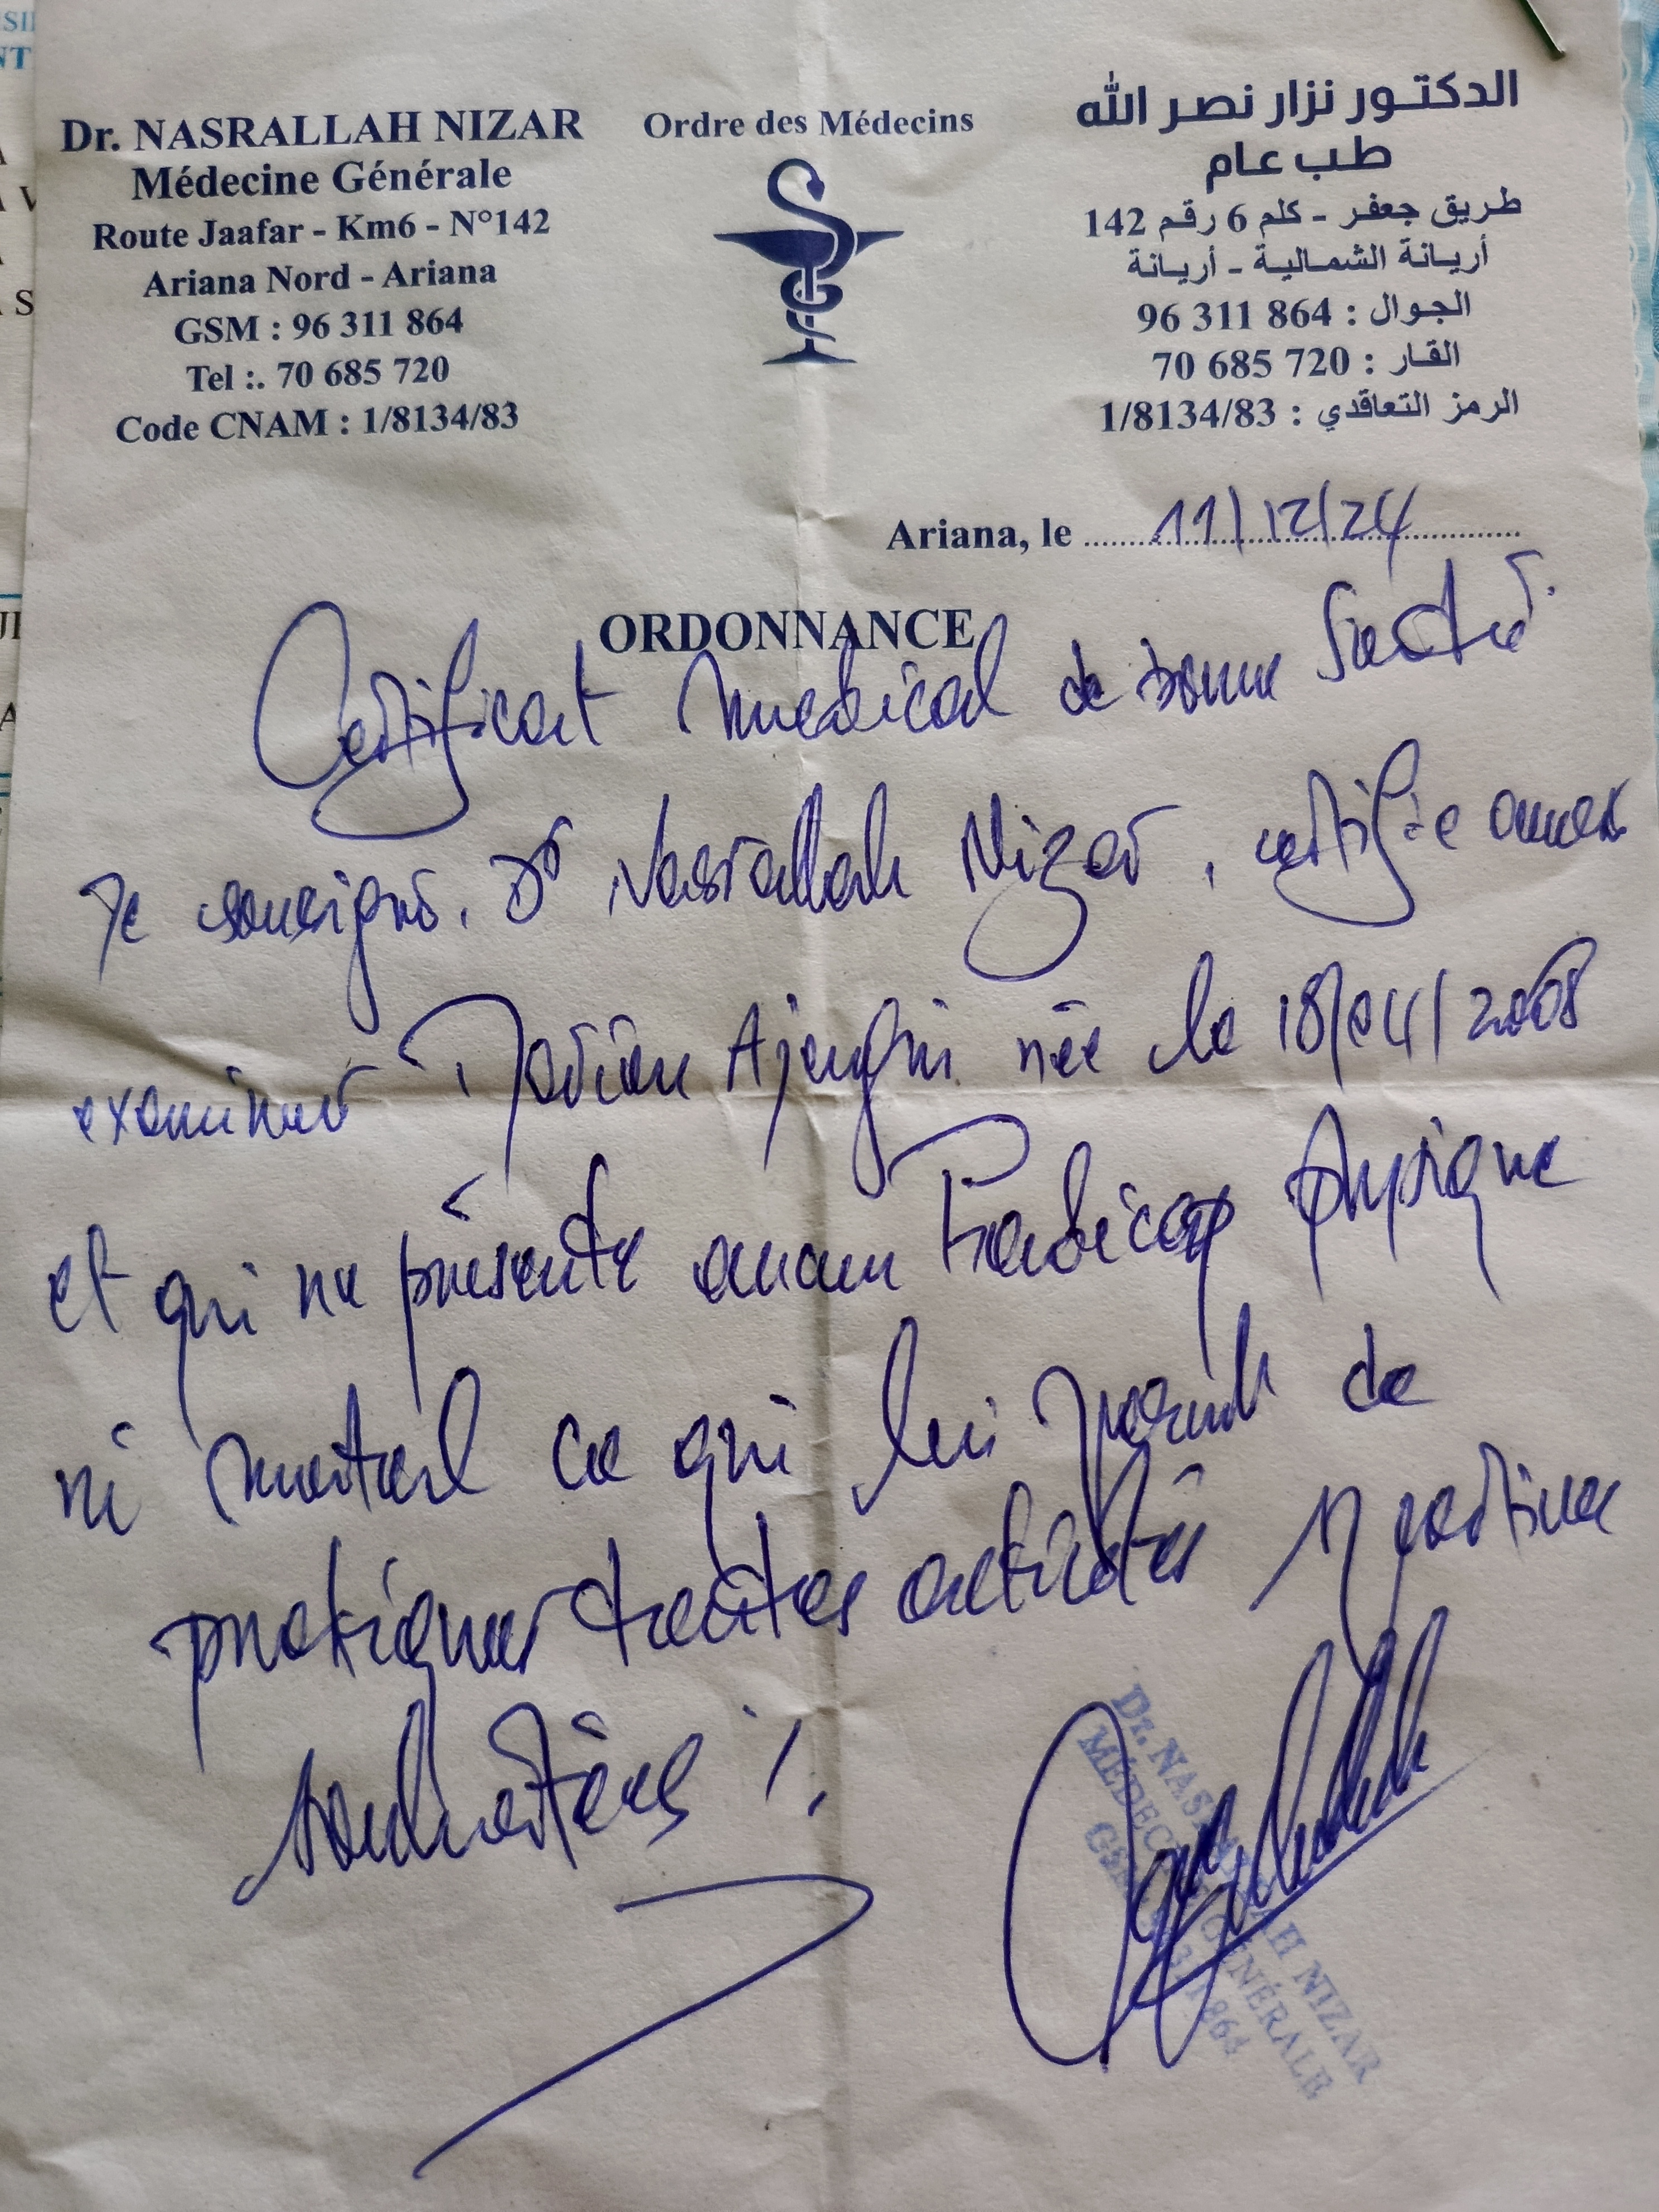 Dr. NASRALLAH NIZAR
Médecine Générale
Route Jaafar - Km6 - N°142
Ariana Nord - Ariana
GSM : 96 311 864
Tel :. 70 685 720
Code CNAM : 1/8134/83
Ordre des Médecins
الدكتور نزار نصر الله
طب عام
طريق جعفر - كلم 6 رقم 142
أريانة الشمالية - أريانة
الجوال : 96 311 864
القار : 70 685 720
الرمز التعاقدي : 1/8134/83
Ariana, le 11/12/24
ORDONNANCE
Certificat medical de bonne Santé
Je sousigné, Dr Nasrallah Nizar, certifie avoir
examiner née le 18/04/2008
et qui ne présente aucun handicap physique
ni mental ce qui lui permet de
pratiquer toutes activités
Dr. NASRALLAH NIZAR
MÉDECINE GÉNÉRALE